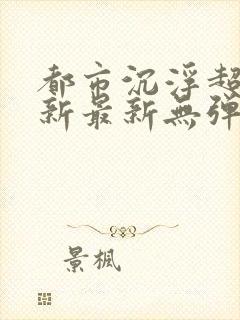 都市沉浮超
新最新無弹
景楓